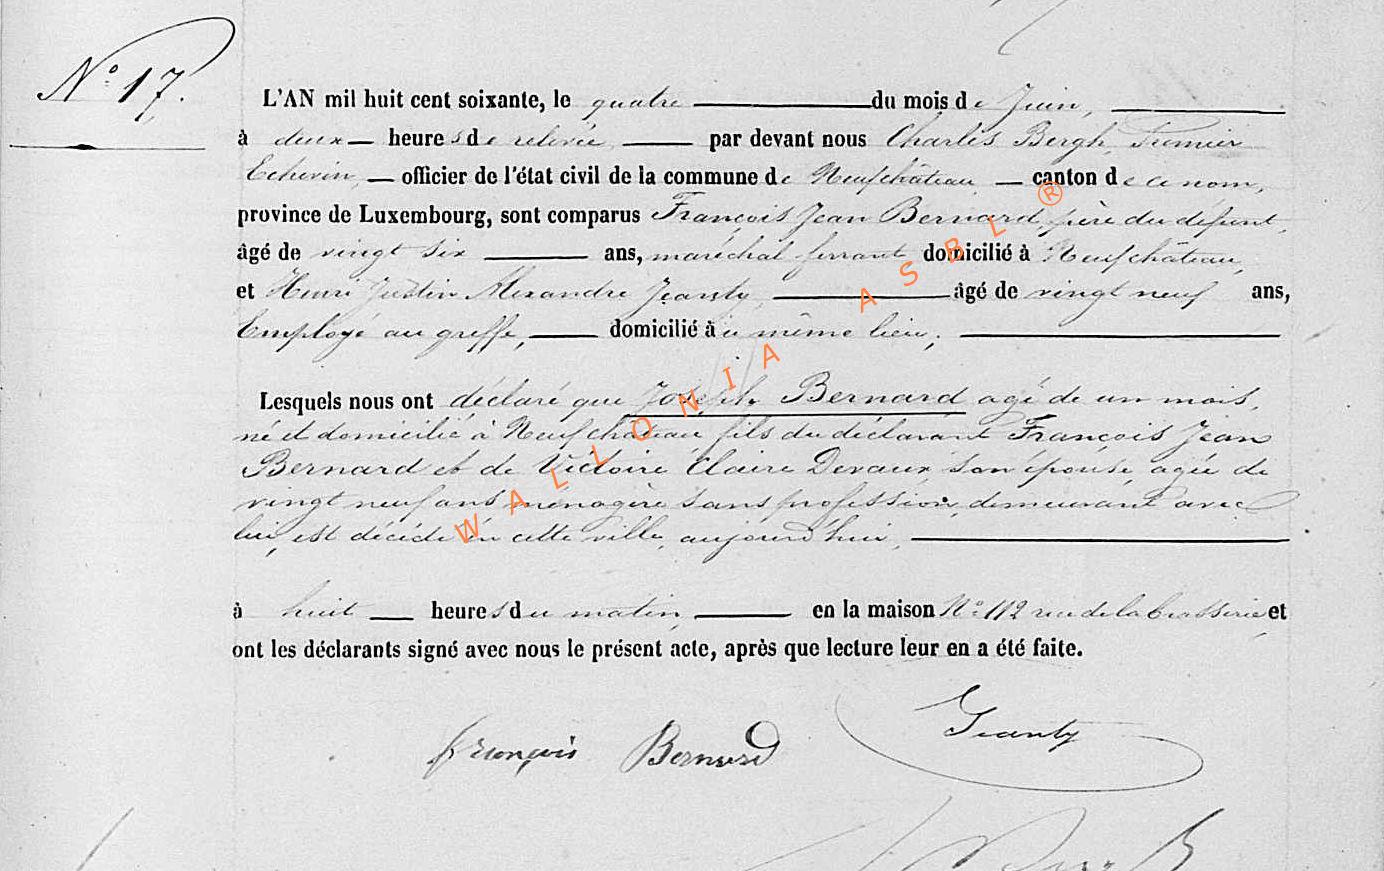 N° 17.
L'AN mil huit cent soixante, le quatre du mois de Juin,
à deux heures de relevée par devant nous Charles Bergh, Premier
Echevin, officier de l'état civil de la commune de Neufchâteau canton de ce nom,
province de Luxembourg, sont comparus François Jean Bernard, père du défunt,
âgé de vingt six ans, maréchal ferrant domicilié à Neufchâteau,
et Henri Justin Alexandre âgé de vingt neuf ans,
Employé au greffe, domicilié au même lieu,
Lesquels nous ont déclaré que Joseph Bernard agé de un mois,
né et domicilié à Neufchâteau fils du déclarant François Jean
Bernard et de Victoire Claire Devaux son épouse agée de
vingt neuf ans ménagère sans profession, demeurant avec
lui, est décédé en cette ville, aujourd'hui,
à huit heures du matin, en la maison N° 112 rue de la brasserie et
ont les déclarants signé avec nous le présent acte, après que lecture leur en a été faite.
françois Bernard
WALLONIA ASBL ®